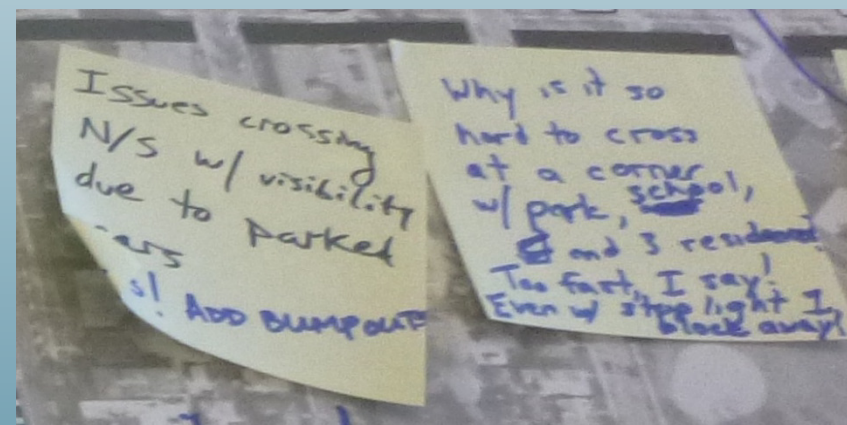 Issues crossing
N/S w/ visibility
due to parked
cars
s! ADD BUMPOUTS
Why is it so
hard to cross
at a corner
w/ park, school,
and 3 resident
Too fast, I say!
Even w/ stop light 1
block away!